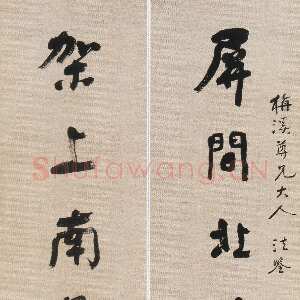 梅溪尊兄大人 法鉴
屏間北
架上南
Shufawang.CN